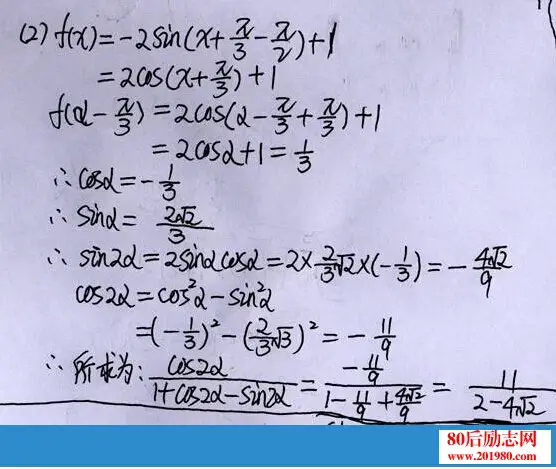 (2) f(x) = -2sin(x+π/3-π/2)+1
= 2cos(x+π/3)+1
f(α-π/3) = 2cos(α-π/3+π/3)+1
= 2cosα+1 = 1/3
∴ cosα = -1/3
∴ sinα = 2√2/3
∴ sin2α = 2sinαcosα = 2×2/3√2×(-1/3) = -4√2/9
cos2α = cos²α-sin²α
=(-1/3)²-(2/3√3)² = -11/9
∴ 所求为: cos2α/(1+cos2α-sin2α) = (-11/9)/(1-11/9+4√2/9) = 11/(2-4√2)
80后励志网
www.201980.com